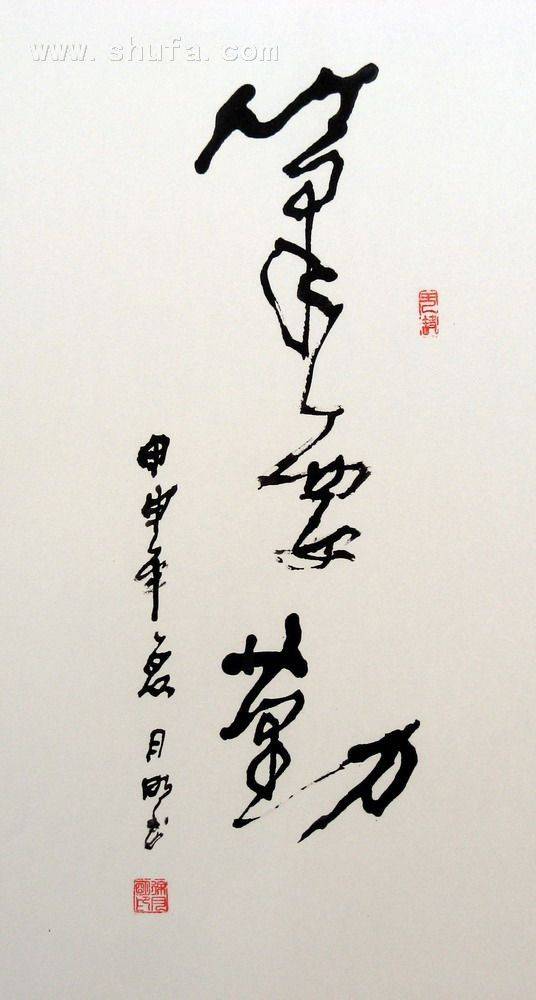 www.shufa.com
筆要勤
甲申年夏月明书